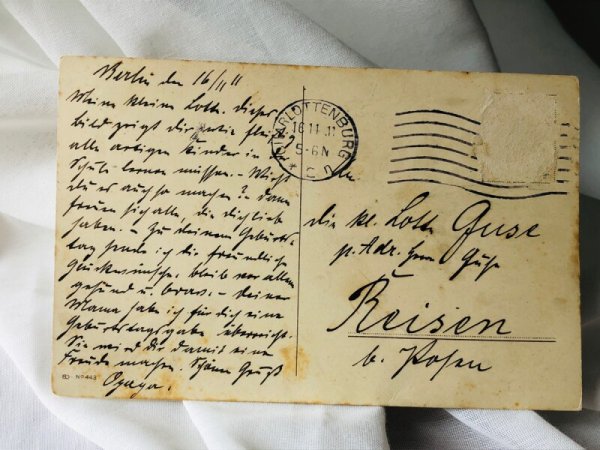 Berlin den 16/11 11
Meine kleine Lotte. Dieses
Bild zeigt dir, wie fleißig
alle artigen Kinder in d.
Schule lernen müssen. – Wirst
du es auch so machen? Dann
freuen sich alle, die dich lieb
haben. – Zu deinem Geburts-
tag sende ich die freundlichen
Glückwünsche, bleib vor allem
gesund u. brav. – Deiner
Mama habe ich für dich eine
Geburtstagsgabe überreicht.
Sie wird dir damit eine
Freude machen. Schönen Gruß
Opapa.
No 443
CHARLOTTENBURG
16.11.11
5-6N
An
die kl. Lotte Guse
p. Adr. Herrn Guse
Reisen
b. Posen